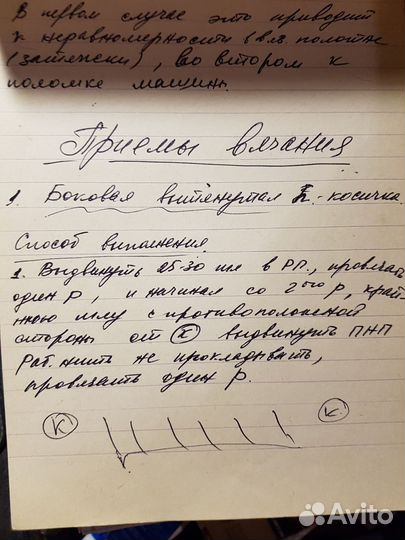 В первом случае это приводит
к неравномерности вяз. полотна
(затяжки), во втором к
поломке машины.
Приемы вязания
1. Боковая вытянутая п.-косичка.
Способ выполнения
1. Выдвинуть 25-30 игл в РП., провязать
один р, и начиная со 2ого р, край-
нюю иглу с противоположной
стороны от К выдвинуть ПНП
Раб. нить не прокладывать,
провязать один р.
К К
Avito